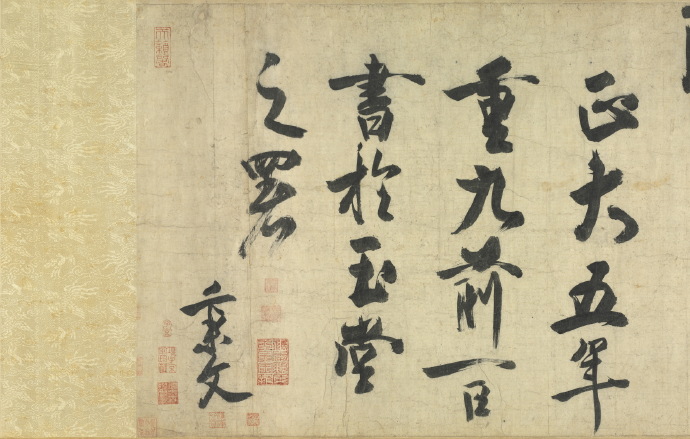 正大五年
重九前一日
書於玉堂
之署
秉文